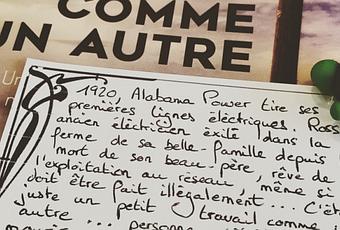 COMME
UN AUTRE
Un
1920, Alabama Power tire ses
premières lignes électriques. Rosc
ancien électricien exilé dans la
ferme de sa belle-famille depuis
mort de son beau-père, rêve de
l'exploitation au réseau, même si
doit être fait illégalement... C'ét
juste un petit travail comme
autre ... personne